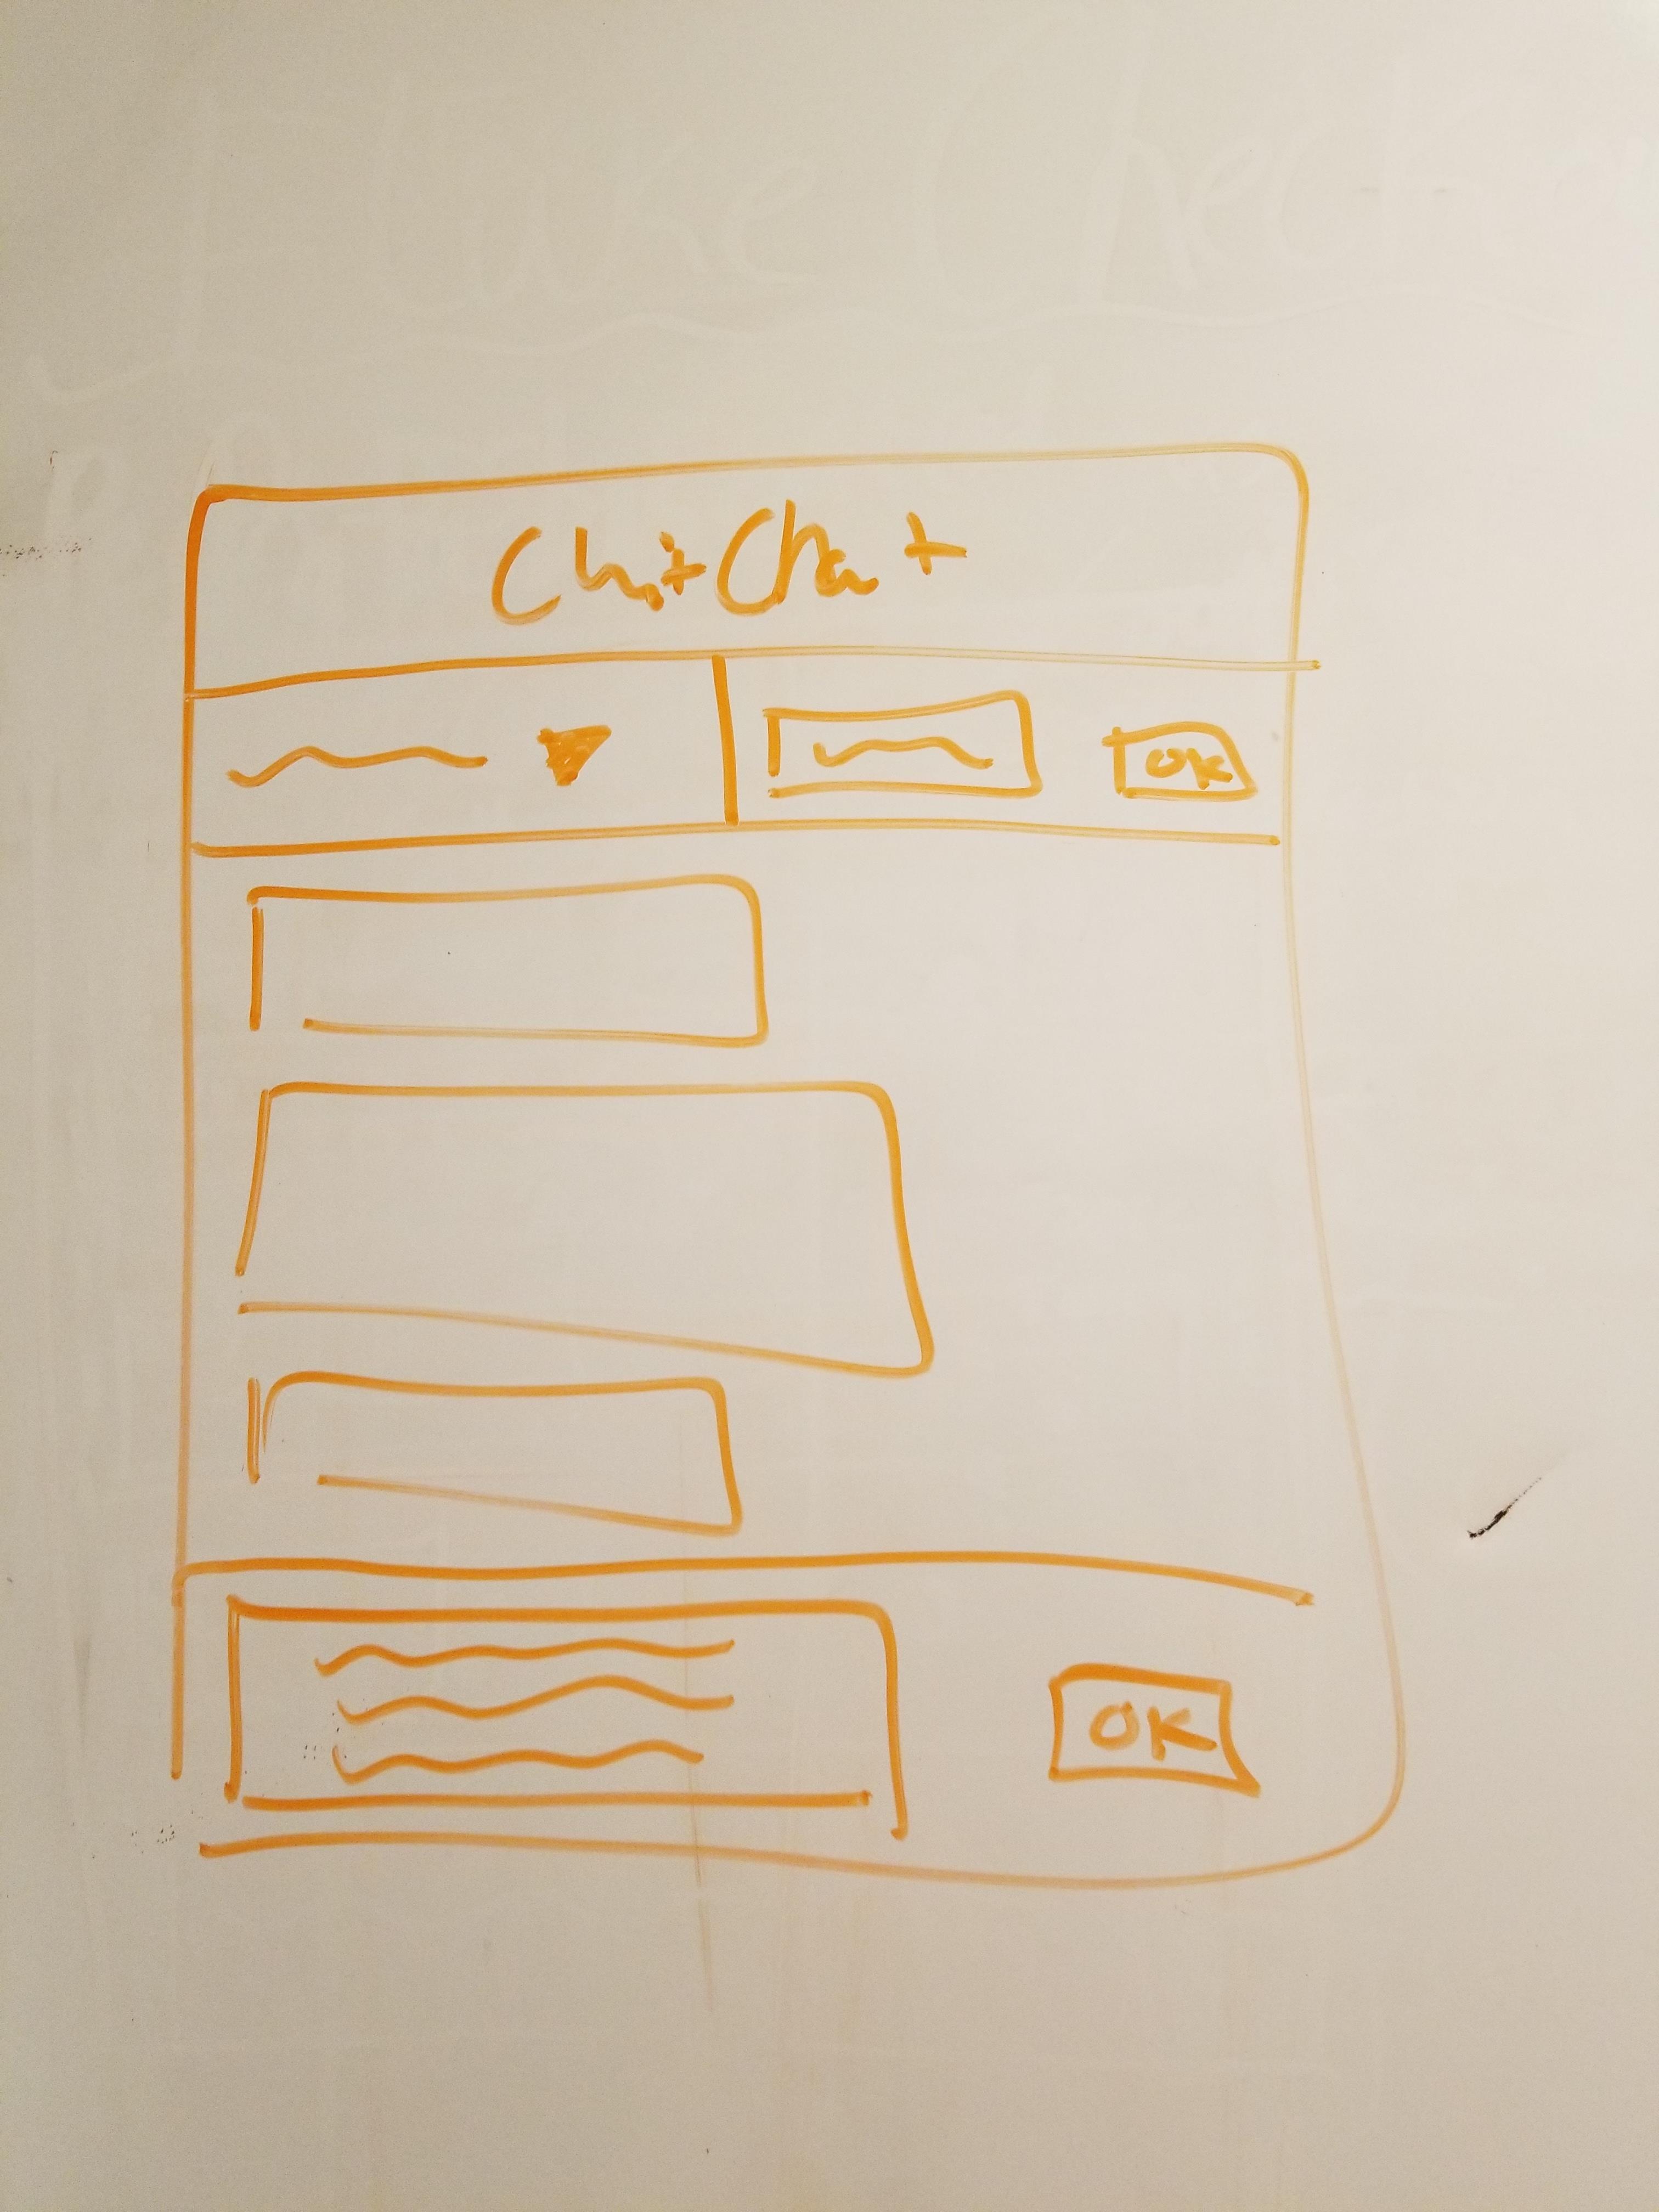 ChitChat
OK
OK